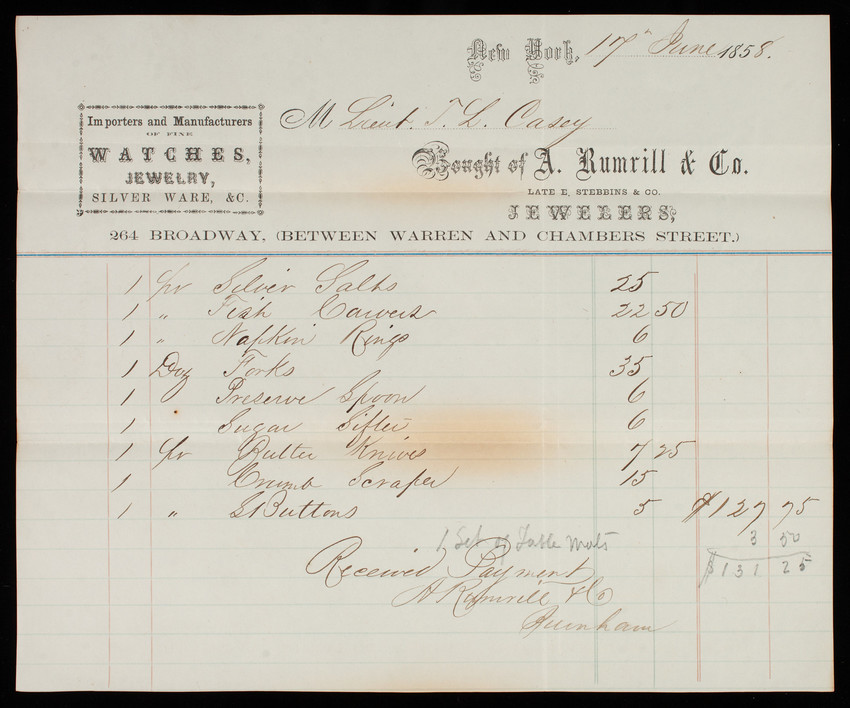 New York, 17th June 1858.
Importers and Manufacturers
OF FINE
WATCHES,
JEWELRY,
SILVER WARE, &C.
M Lieut. T. L. Casey
Bought of A. Rumrill & Co.
LATE E. STEBBINS & CO.
JEWELERS,
264 BROADWAY, (BETWEEN WARREN AND CHAMBERS STREET.)
1 pr Silver Salts 25
1 " Fish Carvers 22 50
1 " Napkin Rings 6
1 Doz Forks 35
1 Preserve Spoon 6
1 Sugar Sifter 6
1 pr Butter Knives 7 25
1 Crumb Scraper 15
1 " S Buttons 5 $127 75
1 Set of Table Mats 3 50
$131 25
Received Payment
A Rumrill & Co
Burnham